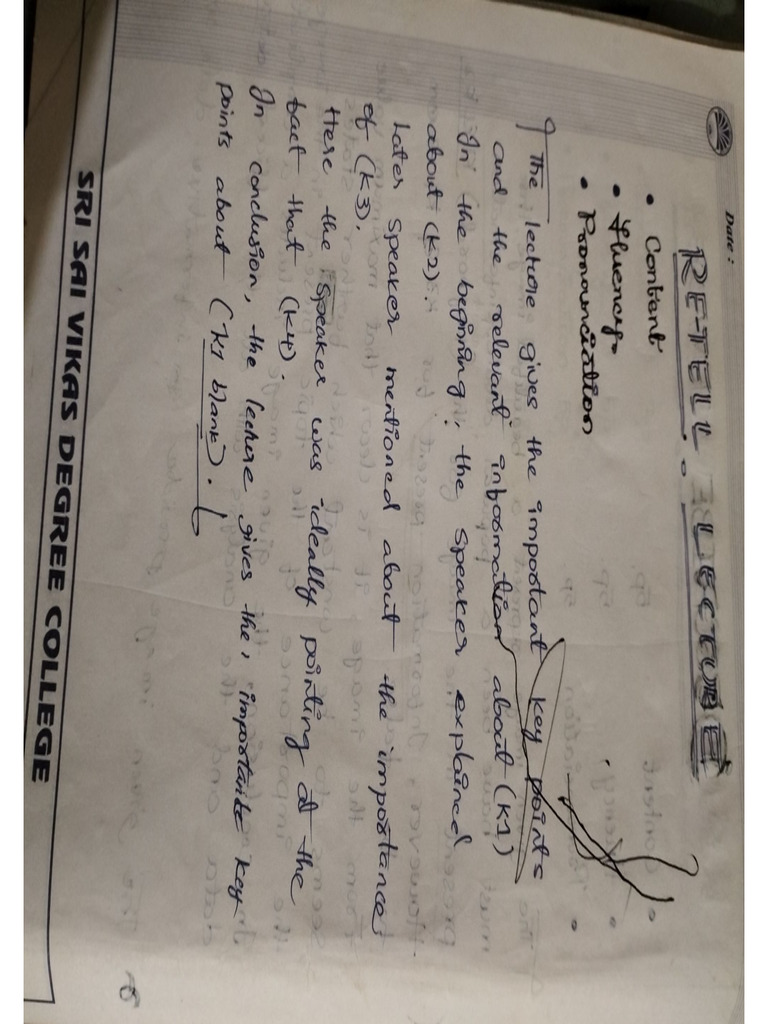 Date :
RE-TELL LECTURE
• Content
• fluency
• Pronounciation
The lecture gives the important key points
and the relevant information about (K1)
In the beginning, the speaker explained
about (K2).
Later speaker mentioned about the importances
of (K3).
Here the speaker was ideally pointing at the
fact that (K4).
In conclusion, the lecture gives the, importante key
points about (K1 blank).
SRI SAI VIKAS DEGREE COLLEGE